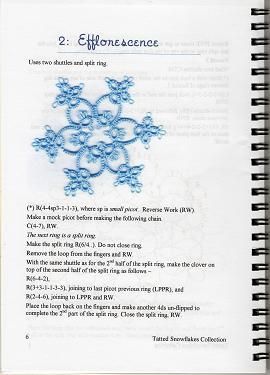 2: Efflorescence
Uses two shuttles and split ring.
(*) R(4-4sp3-1-1-3), where sp is small picot. Reverse Work (RW)
Make a mock picot before making the following chain.
C(4-7), RW.
The next ring is a split ring.
Make the split ring R(6/4..). Do not close ring.
Remove the loop from the fingers and RW.
With the same shuttle as for the 2nd half of the split ring, make the clover on
top of the second half of the split ring as follows –
R(6-4-2),
R(3+3-1-1-3-3), joining to last picot previous ring (LPPR), and
R(2-4-6), joining to LPPR and RW.
Place the loop back on the fingers and make another 4ds un-flipped to
complete the 2nd part of the split ring. Close the split ring, RW.
6
Tatted Snowflakes Collection